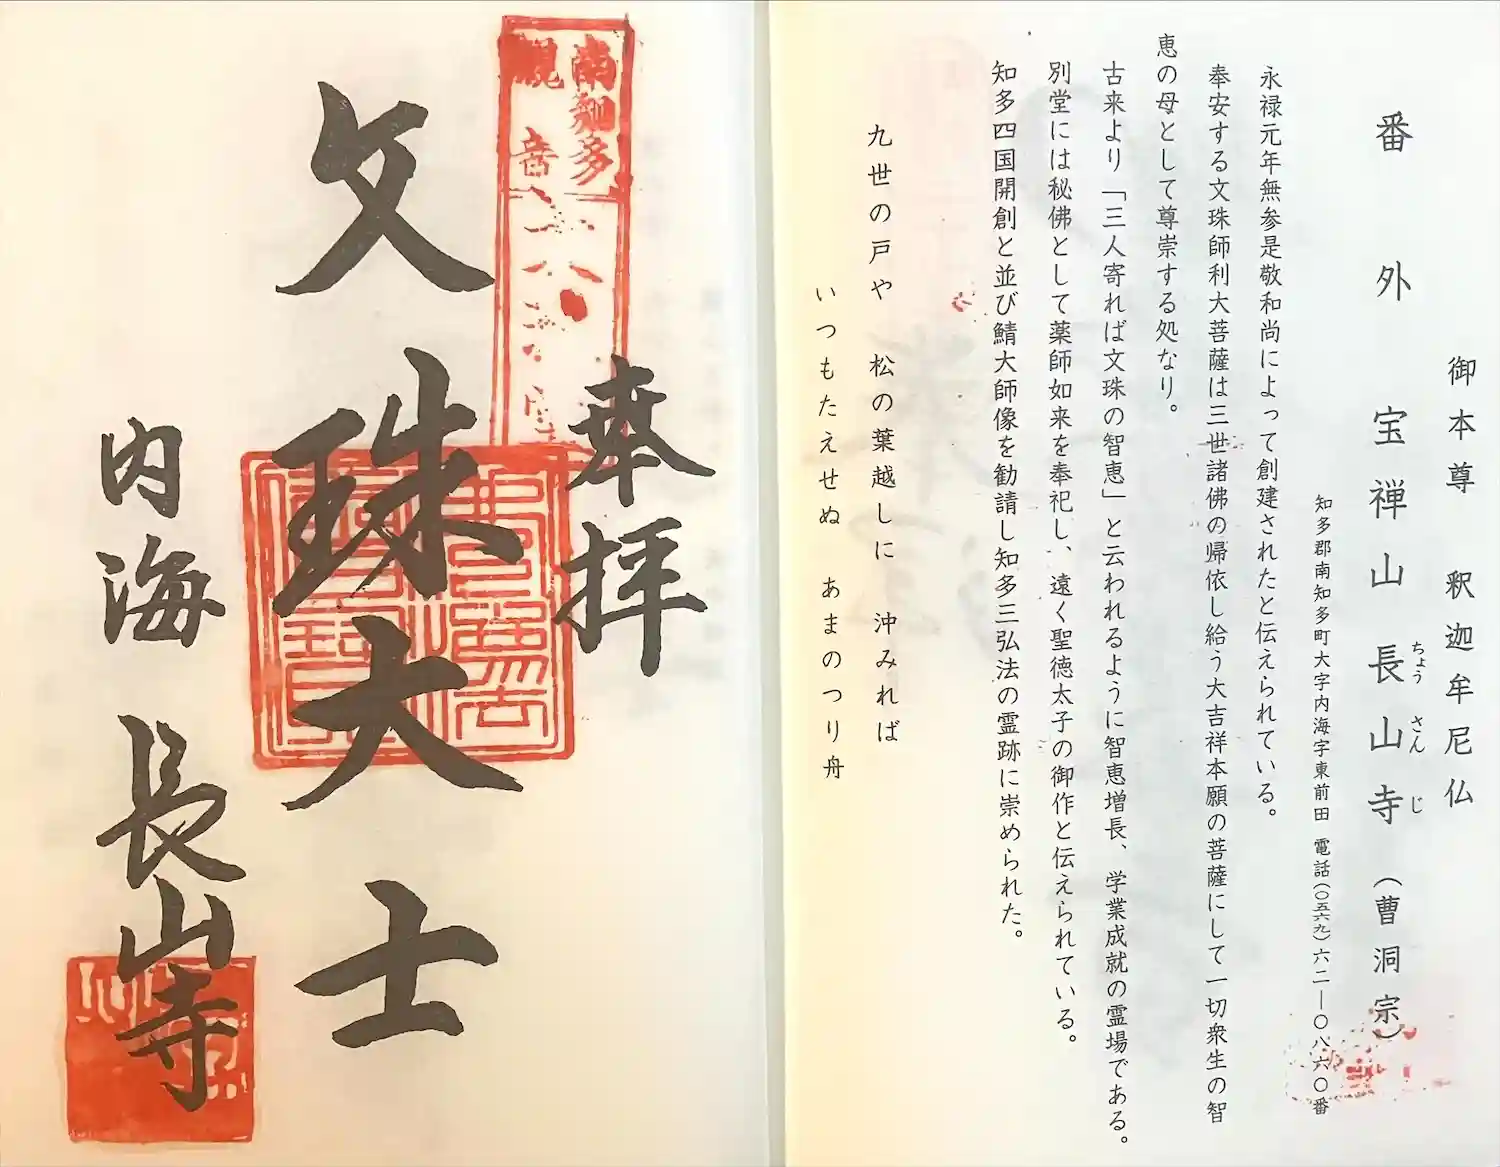 御本尊 釈迦牟尼仏
番外 宝禅山 長山寺(曹洞宗)
ちょう さん じ
知多郡南知多町大字内海字東前田 電話(〇五六九)六二―〇八六〇番
永禄元年無参是敬和尚によって創建されたと伝えられている。
奉安する文珠師利大菩薩は三世諸佛の帰依し給う大吉祥本願の菩薩にして一切衆生の智
恵の母として尊崇する処なり。
古来より「三人寄れば文珠の智恵」と云われるように智恵増長、学業成就の霊場である。
別堂には秘佛として薬師如来を奉祀し、遠く聖徳太子の御作と伝えられている。
知多四国開創と並び鯖大師像を勧請し知多三弘法の霊跡に崇められた。
九世の戸や 松の葉越しに 沖みれば
いつもたえせぬ あまのつり舟
奉拝
南知多
観音
文珠大士
内海 長山寺